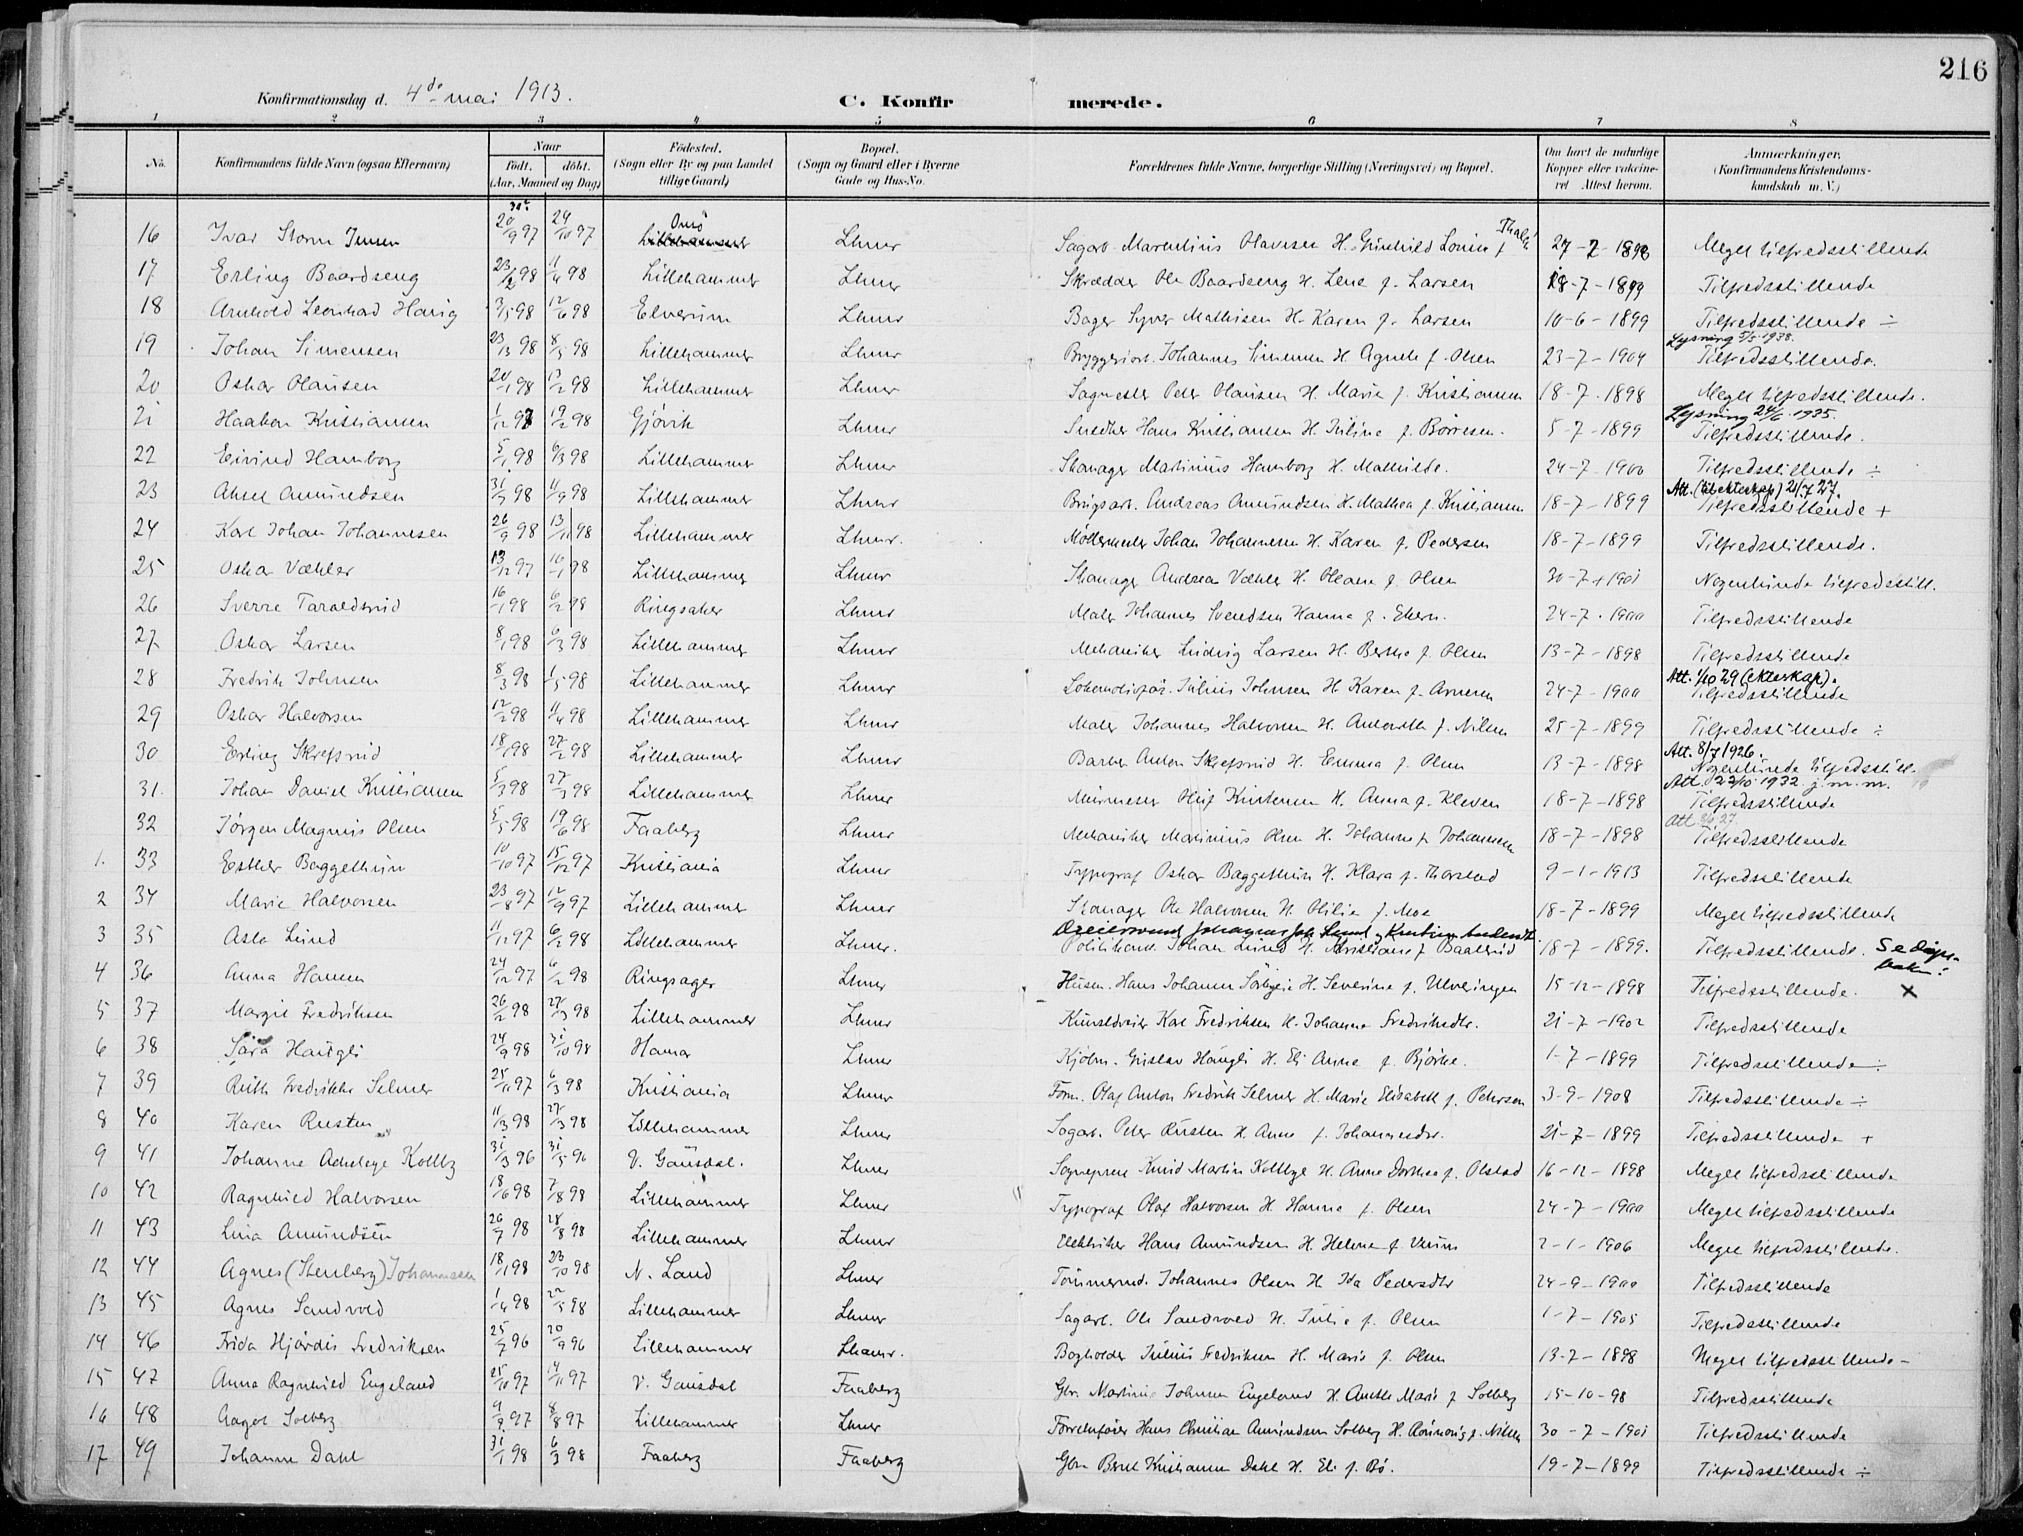 216
Konfirmationsdag d. 4de mai 1913.
C. Konfirmerede.
1 2 3 4 5 6 7 8
No. Konfirmandens fulde Navn (ogsaa Efternavn) Naar født. døbt. (Aar, Maaned og Dag) Fødested. (Sogn eller By og paa Landet tillige Gaard) Bopæl. (Sogn og Gaard eller i Byerne Gade og Hus-No. Forældrenes fulde Navne, borgerlige Stilling (Næringsvei) og Bopæl. Om havt de naturlige Kopper eller vakcineret Attest herom. Anmærkninger. (Konfirmandens Kristendomskundskab m. V.)
16 Ivar Storm Jensen 20/9 97 24/10 97 Lillehammer Lhmr Sagarb. Marentius Olavesen H. Gunhild Lovise f. 27-7-1898 Meget tilfredsstillende
17 Erling Baardseng 23/2 98 11/4 98 Lillehammer Lhmr Skrædder Ole Baardseng H. Lene f. Larsen 18-7-1899 Tilfredsstillende
18 Arnhold Leonhard Haug 3/5 98 12/6 98 Elverum Lhmr Bager Syver Mathisen H. Karen f. Larsen 10-6-1899 Tilfredsstillende ÷
Lysning 5/5 1938.
19 Johan Simensen 8/5 98 Lillehammer Lhmr Bryggeriarb. Johannes Simensen H. Agnete f. Olsen 23-7-1904 Tilfredsstillende.
20 Oskar Olausen 20/1 98 13/2 98 Lillehammer Lhmr Sagmester Peter Olausen H. Marie f. Kristiansen 18-7-1898 Meget tilfredsstillende.
Lysning 24/6 1935.
21 Haakon Kristiansen 1/12 97 19/2 98 Gjövik Lhmr Snedker Hans Kristiansen H. Juline f. Börresen. 5-7-1899 Tilfredsstillende.
22 Eivind Hamborg 5/1 98 6/3 98 Lillehammer Lhmr Skomager Martinius Hamborg H. Mathilde. 24-7-1900 Tilfredsstillende ÷
Att. (til ekteskap) 21/7 27.
23 Aksel Amundsen 31/7 98 11/9 98 Lillehammer Lhmr Brugsarb. Andreas Amundsen H. Mathea f. Kristiansen 18-7-1899 Tilfredsstillende +
24 Karl Johan Johannesen 26/9 98 13/11 98 Lillehammer Lhmr. Möllermester Johan Johannesen H. Karen f. Pedersen 18-7-1899 Tilfredsstillende.
25 Oskar Væhler 13/12 97 16/1 98 Lillehammer Lhmr Skomager Andreas Væhler H. Oleane f. Olsen 30-7-1901 Nogenlunde tilfredsstill.
26 Sverre Taraldsrud 16/1 98 6/2 98 Ringsaker Lhmr Maler Johannes Svendsen Hanna f. Ekern. 24-7-1900 Tilfredsstillende
27 Oskar Larsen 8/1 98 6/3 98 Lillehammer Lhmr Mekaniker Ludvig Larsen H. Berthe f. Olsen 13-7-1898 Tilfredsstillende
Att. 1/10 29 (ekteskap).
28 Fredrik Johnsen 8/3 98 1/5 98 Lillehammer Lhmr Lokomotivfør. Julius Johnsen H. Karen f. Arnesen 24-7-1900 Tilfredsstillende
29 Oskar Halvorsen 12/2 98 11/4 98 Lillehammer Lhmr Maler Johannes Halvorsen H. Antonette f. Nilsen 25-7-1899 Tilfredsstillende ÷
Att. 8/7 1926.
30 Erling Skrefsrud 18/1 98 27/2 98 Lillehammer Lhmr Barber Anton Skrefsrud H. Emma f. Olsen 13-7-1898 Nogenlunde tilfredsstill.
Att. 22/10 1932 j. m. m.
31. Johan Daniel Kristiansen 5/3 98 27/3 98 Lillehammer Lhmr Murmester Oluf Kristensen H. Anna f. Kleven 18-7-1898 Tilfredsstillende
32 Jörgen Magnus Olsen 5/5 98 19/6 98 Faaberg Lhmr Mekaniker Marinius Olsen H. Johanne f. Johannesen 18-7-1898 Tilfredsstillende
1. 33 Esther Baggethun 10/10 97 15/12 97 Kristiania Lhmr Typograf Oskar Baggethun H. Klara f. Thorstad 9-1-1913 Tilfredsstillende
2 34 Marie Halvorsen 23/8 97 12/9 97 Lillehammer Lhmr Skomager Ole Halvorsen H. Otilie f. Moe 18-7-1899 Meget tilfredsstillende
3 35 Asta Lund 11/12 97 6/2 98 Lillehammer Lhmr. Politikonst. Johan Lund H. Kristiane f. Baalsrud 18-7-1899. Tilfredsstillende.
4 36 Anna Hansen 24/12 97 6/2 98 Ringsager Lhmr Husm. Hans Johansen H. Severine f. Ulveringen 15-12-1898 Tilfredsstillende. ×
5 37 Margit Fredriksen 26/2 98 27/3 98 Lillehammer Lhmr Kunstdreier Karl Fredriksen H. Johanne Fredriksdtr. 21-7-1902 Tilfredsstillende
6 38 Sara Haugli 24/9 98 31/10 98 Hamar Lhmr Kjöbm. Gustav Haugli H. Eli Anna f. Björke. 1-7-1899 Tilfredsstillende ÷
7 39 Ruth Fredrikke Selmer 25/11 97 6/3 98 Kristiania Lhmr Form. Olaf Anton Fredrik Selmer H. Marie Elisabeth f. Petersen 3-9-1908 Tilfredsstillende ÷
8 40 Karen Rusten 11/3 98 27/3 98 Lillehammer Lhmr Sagarb. Peter Rusten H. Anne f. Johannesdtr. 21-7-1899 Tilfredsstillende +
9 41 Johanne Adeleye Kolby 31/3 96 31/5 96 V. Gausdal. Lhmr Sogneprest Knud Martin Kolbye H. Anne Dorthea f. Olstad 16-12-1898 Meget tilfredsstillende
10 42 Ragnhild Halvorsen 18/6 98 7/8 98 Lillehammer Lhmr Typograf Olaf Halvorsen H. Hanna f. Olsen 24-7-1900 Meget tilfredsstillende
11 43 Lina Amundsen 26/7 98 28/8 98 Lillehammer Lhmr Elektriker Hans Amundsen H. Helene f. 2-1-1906 Meget tilfredsstillende.
12 44 Agnes (Stenberg) Johannesen 18/1 98 23/10 98 N. Land Lhmr Tömmermd. Johannes Olsen H. Ida Pedersdtr 24-9-1900 Tilfredsstillende
13 45 Agnes Sandvold 1/4 98 22/5 98 Lillehammer Lhmr Sagarb. Ole Sandvold H. Julie f. Olsen 1-7-1905 Tilfredsstillende
14 46 Frida Hjördis Fredriksen 25/7 96 20/9 96 Lillehammer Lhamr. Bogholder Julius Fredriksen H. Marie f. Olsen 13-7-1898 Meget tilfredsstillende -
15 47 Anna Ragnhild Engeland 25/10 97 14/11 97 V. Gausdal Faaberg Gbr. Martinus Johnsen Engeland H. Anette Marie f. Solberg 15-10-98 Tilfredsstillende
16 48 Aagot Solberg 8/8 97 Lillehammer Lhmr Hans Christian Amundsen Solberg H. Rönnaug f. Nilsen 30-7-1901 Tilfredsstillende
17 49 Johanne Dahl 31/1 98 6/3 98 Faaberg Faaberg Gbr. Bernt Kristiansen Dahl H. Eli f. Bö. 19-7-1899 Tilfredsstillende ÷